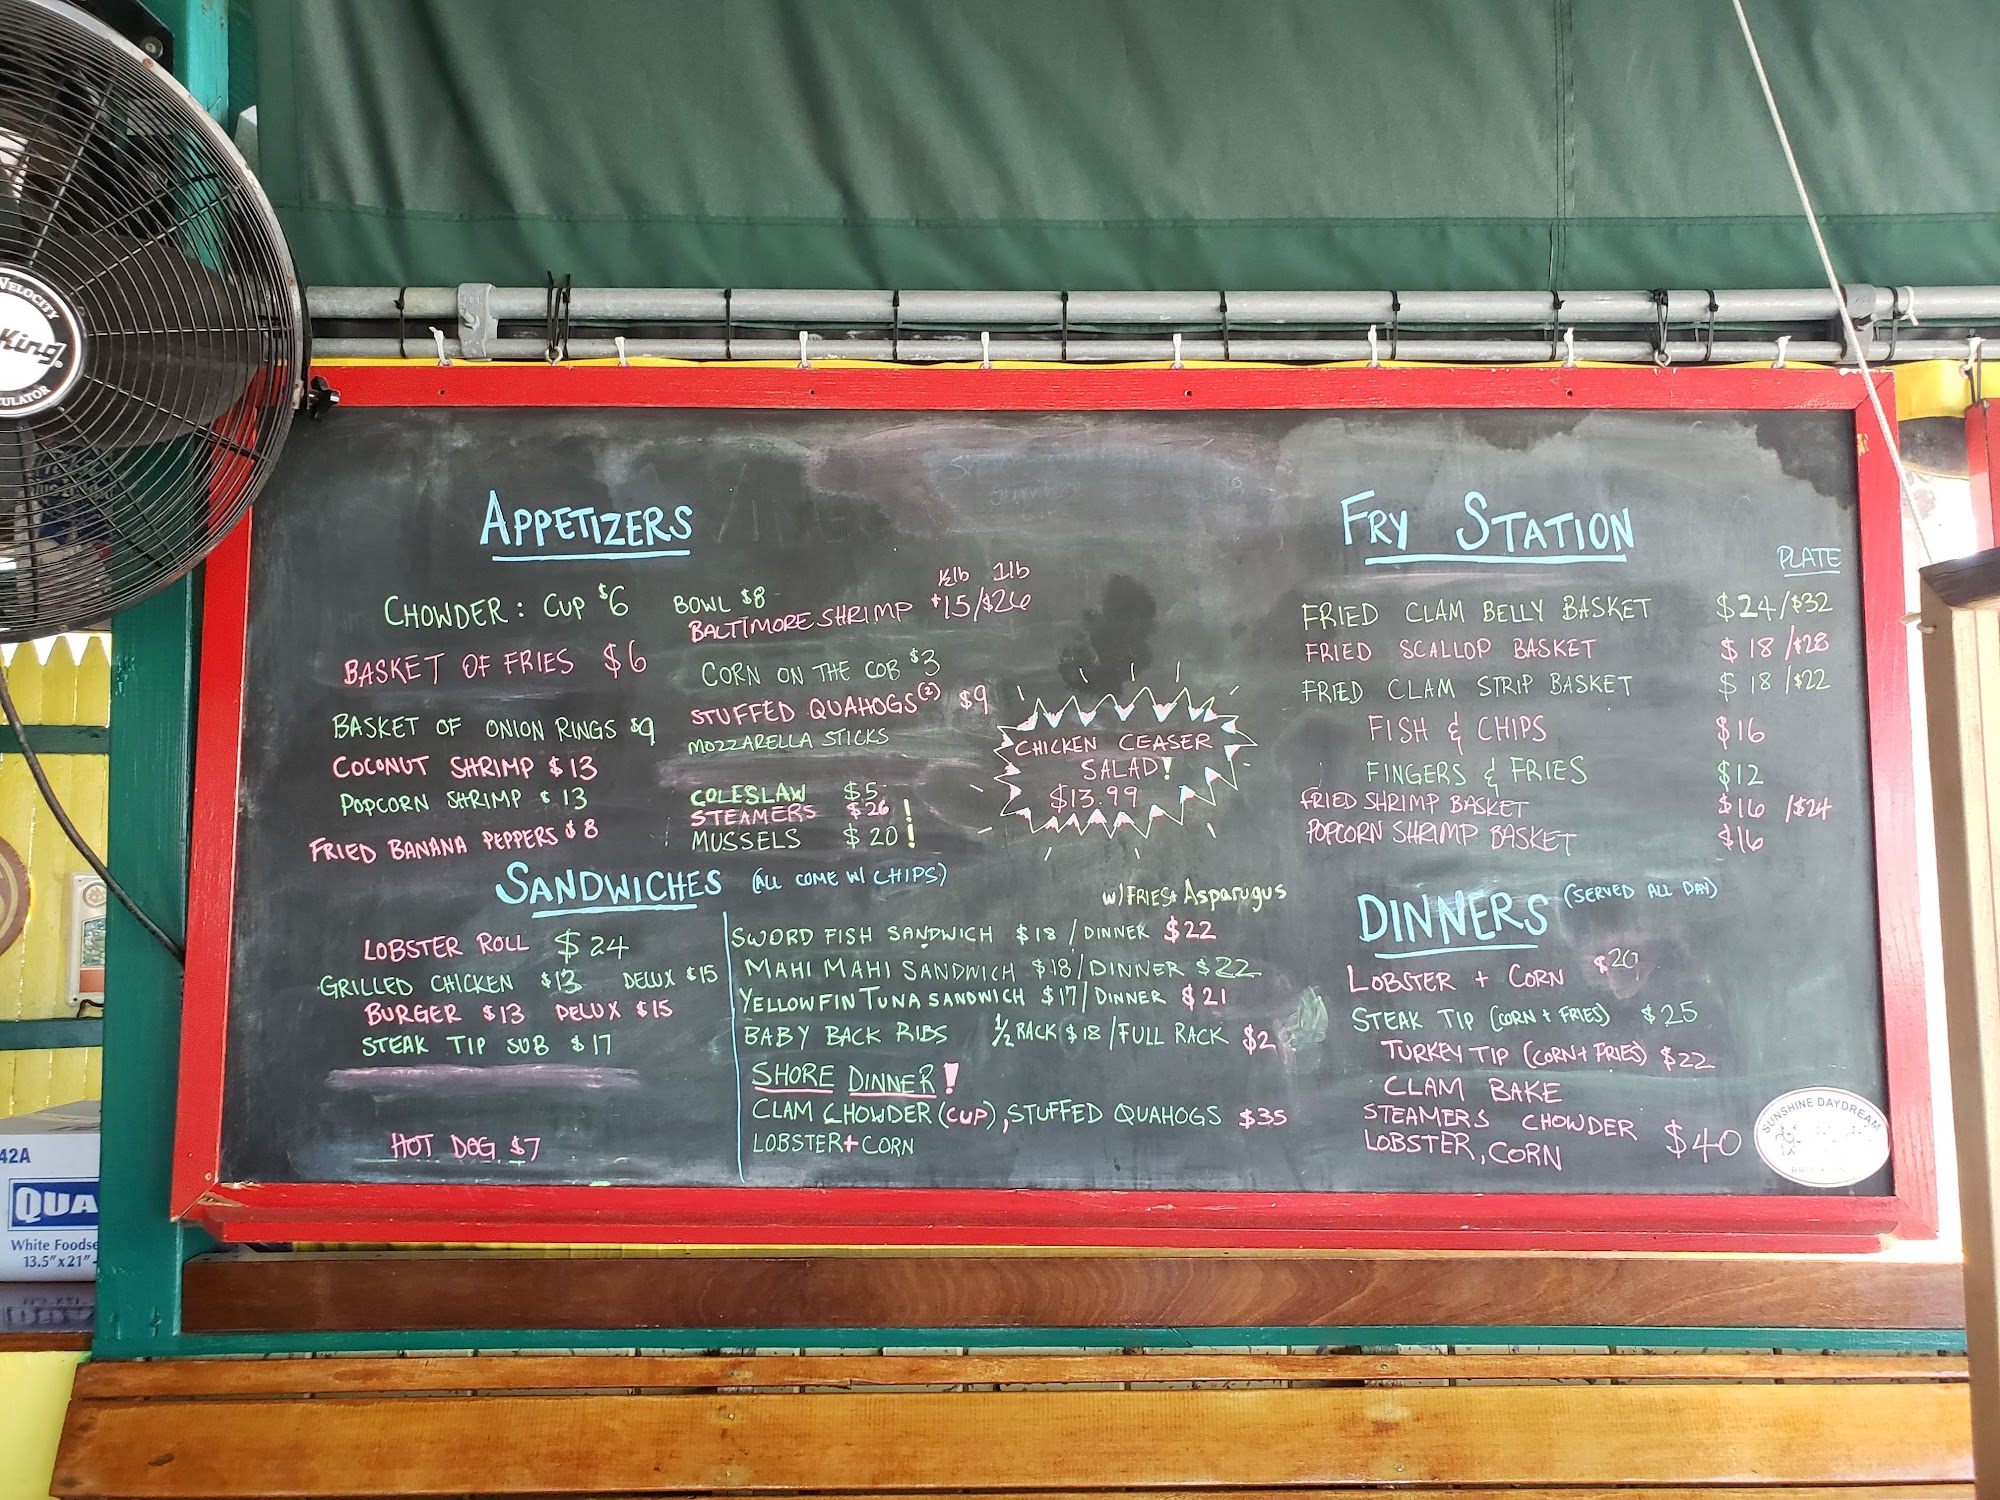 APPETIZERS
CHOWDER: CUP $6 BOWL $8
BASKET OF FRIES $6
BASKET OF ONION RINGS $9
COCONUT SHRIMP $13
POPCORN SHRIMP $13
FRIED BANANA PEPPERS $8
½lb 1lb
BALTIMORE SHRIMP $15/$26
CORN ON THE COB $3
STUFFED QUAHOGS (2) $9
MOZZARELLA STICKS
COLESLAW $5
STEAMERS $26 !
MUSSELS $20 !
CHICKEN CEASER
SALAD!
$13.99
SANDWICHES (ALL COME W/ CHIPS)
LOBSTER ROLL $24
GRILLED CHICKEN $13 DELUX $15
BURGER $13 DELUX $15
STEAK TIP SUB $17
HOT DOG $7
W/FRIES+ Asparugus
SWORD FISH SANDWICH $18 / DINNER $22
MAHI MAHI SANDWICH $18/DINNER $22
YELLOWFIN TUNA SANDWICH $17/DINNER $21
BABY BACK RIBS ½ RACK $18/FULL RACK $2
SHORE DINNER!
CLAM CHOWDER (CUP), STUFFED QUAHOGS $35
LOBSTER+CORN
FRY STATION
PLATE
FRIED CLAM BELLY BASKET $24/$32
FRIED SCALLOP BASKET $18/$28
FRIED CLAM STRIP BASKET $18/$22
FISH & CHIPS $16
FINGERS & FRIES $12
FRIED SHRIMP BASKET $16 /$24
POPCORN SHRIMP BASKET $16
DINNERS (SERVED ALL DAY)
LOBSTER + CORN
STEAK TIP (CORN + FRIES) $25
TURKEY TIP (CORN+ FRIES) $22
CLAM BAKE
STEAMERS CHOWDER
LOBSTER, CORN $40
SUNSHINE DAYDREAM
VELOCITY
King
42A
QUA
White Foodse
13.5"x21"